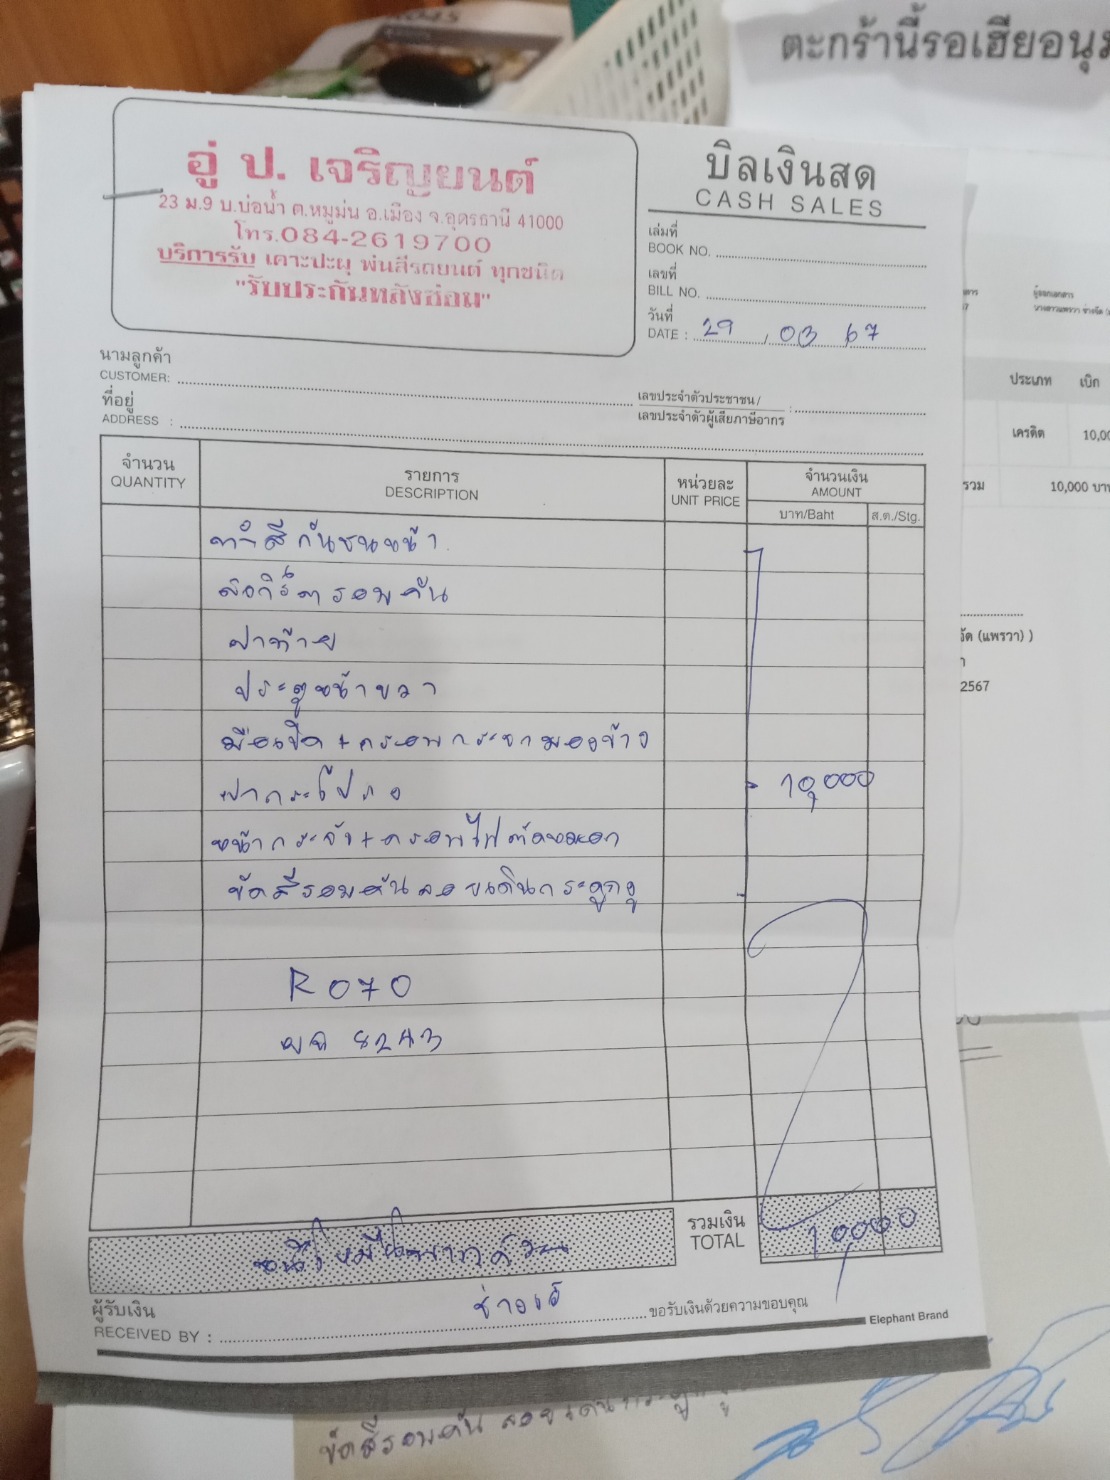 ตะกร้านี้รอเฮียอนุม
อู่ ป. เจริญยนต์
23 ม.9 บ.บ่อน้ำ ต.หมูม่น อ.เมือง จ.อุดรธานี 41000
โทร.084-2619700
บริการรับ เคาะปะผุ พ่นสีรถยนต์ ทุกชนิด
"รับประกันหลังซ่อม"
บิลเงินสด
CASH SALES
เล่มที่
BOOK NO.
เลขที่
BILL NO.
วันที่
DATE : 29 , 03 67
นามลูกค้า
CUSTOMER:
ที่อยู่
ADDRESS :
เลขประจำตัวประชาชน/
เลขประจำตัวผู้เสียภาษีอากร :
จำนวน
QUANTITY
รายการ
DESCRIPTION
หน่วยละ
UNIT PRICE
จำนวนเงิน
AMOUNT
บาท/Baht
ส.ต./Stg.
ทำสีกันชนหน้า
สเกิร์ตรอบคัน
ฝาท้าย
ประตูหน้าขวา
มือเปิด + ครอบกระจกมองข้าง
ฝากระโปรง
10,000
หน้ากระจัง + ครอบไฟตัดหมอก
ขัดสีรอบคัน ลอย
R070
8243
รวมเงิน
TOTAL
10000
หนึ่งหมื่นบาทถ้วน
ผู้รับเงิน
RECEIVED BY :
ช่าง
ขอรับเงินด้วยความขอบคุณ
Elephant Brand
ผู้ออกเอกสาร
ประเภท เบิก
เครดิต 10,00
รวม 10,000 บาท
(แพรวา) )
2567
ขัดสีรอบคัน ลอย